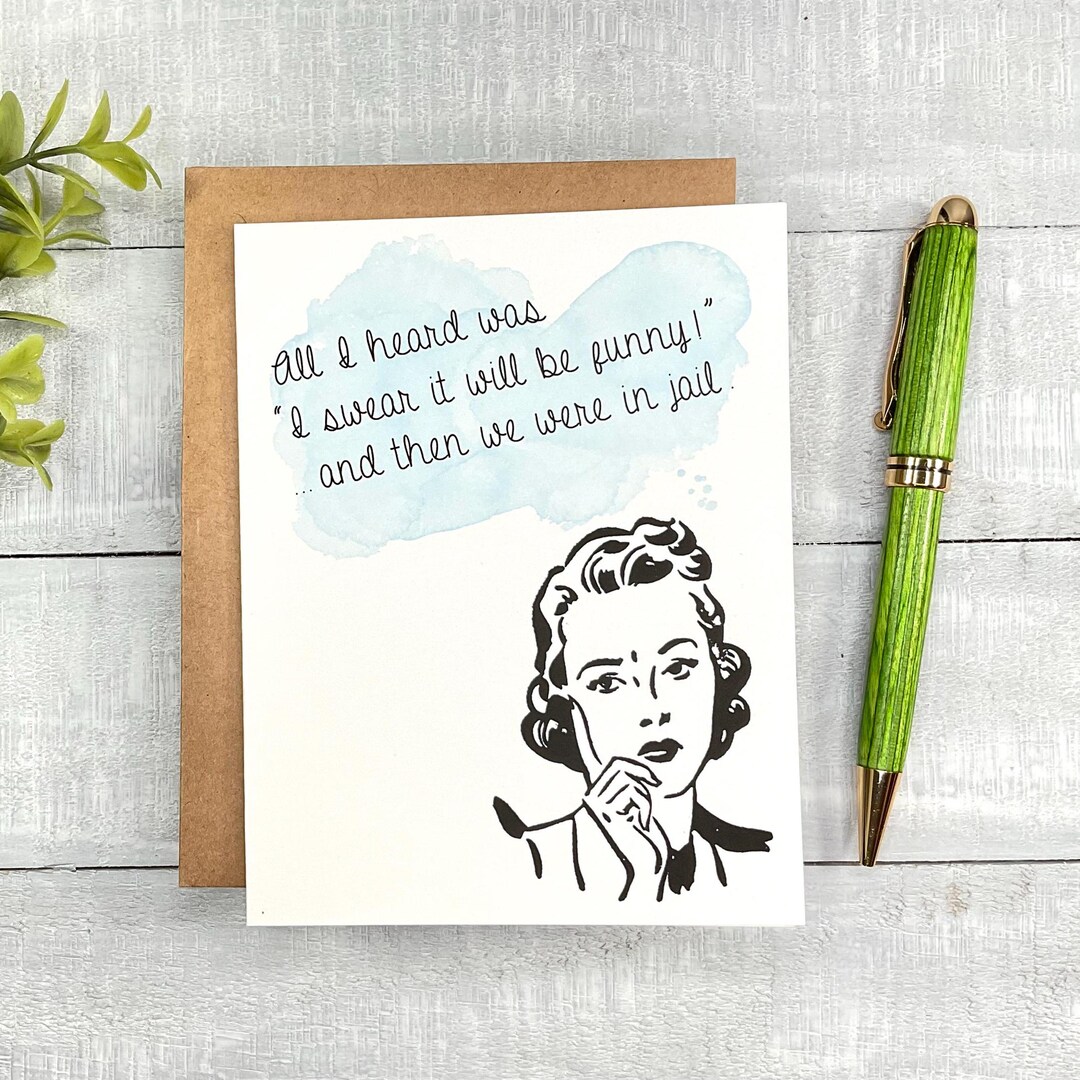 All I heard was
"I swear it will be funny!"
...and then we were in jail.